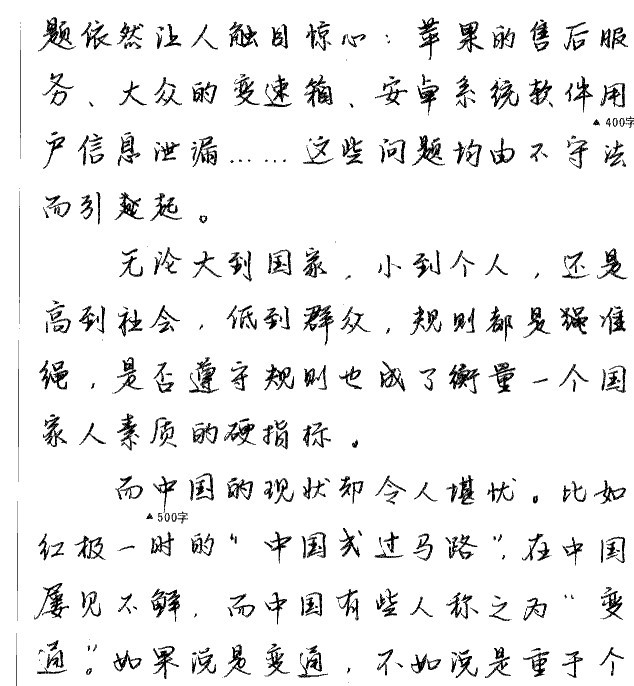 题依然让人触目惊心：苹果的售后服
务、大众的变速箱、安卓系统软件用
▲400字
户信息泄漏……这些问题均由不守法
而引起。
无论大到国家，小到个人，还是
高到社会，低到群众，规则都是准
绳，是否遵守规则也成了衡量一个国
家人素质的硬指标。
而中国的现状却令人堪忧。比如
▲500字
红极一时的“中国式过马路”，在中国
屡见不鲜，而中国有些人称之为“变
通”。如果说是变通，不如说是重于个